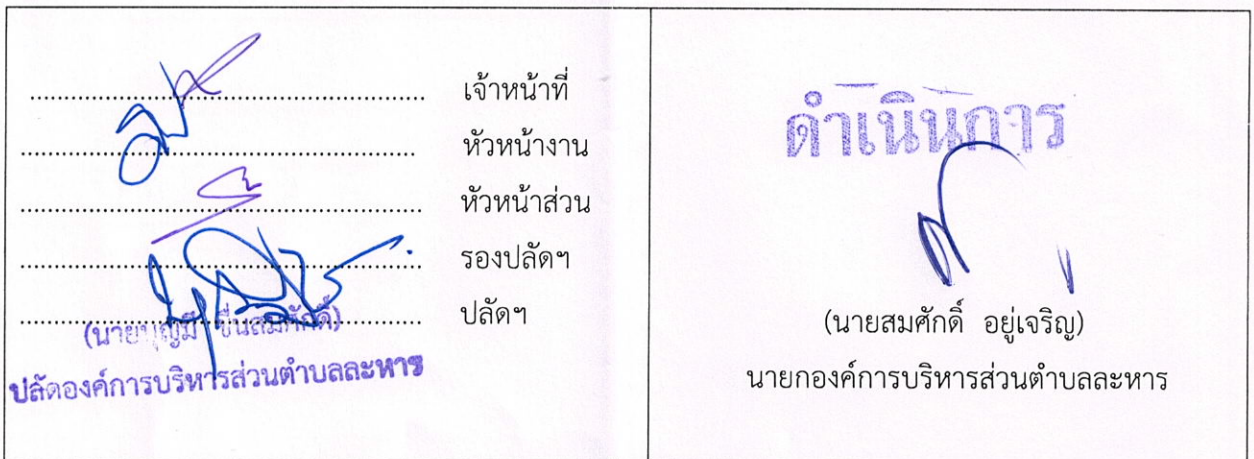 ........................................ เจ้าหน้าที่
........................................ หัวหน้างาน
........................................ หัวหน้าส่วน
........................................ รองปลัดฯ
........................................ ปลัดฯ
(นายบุญมี ชื่นสมศักดิ์)
ปลัดองค์การบริหารส่วนตำบลละหาร
ดำเนินการ
(นายสมศักดิ์ อยู่เจริญ)
นายกองค์การบริหารส่วนตำบลละหาร